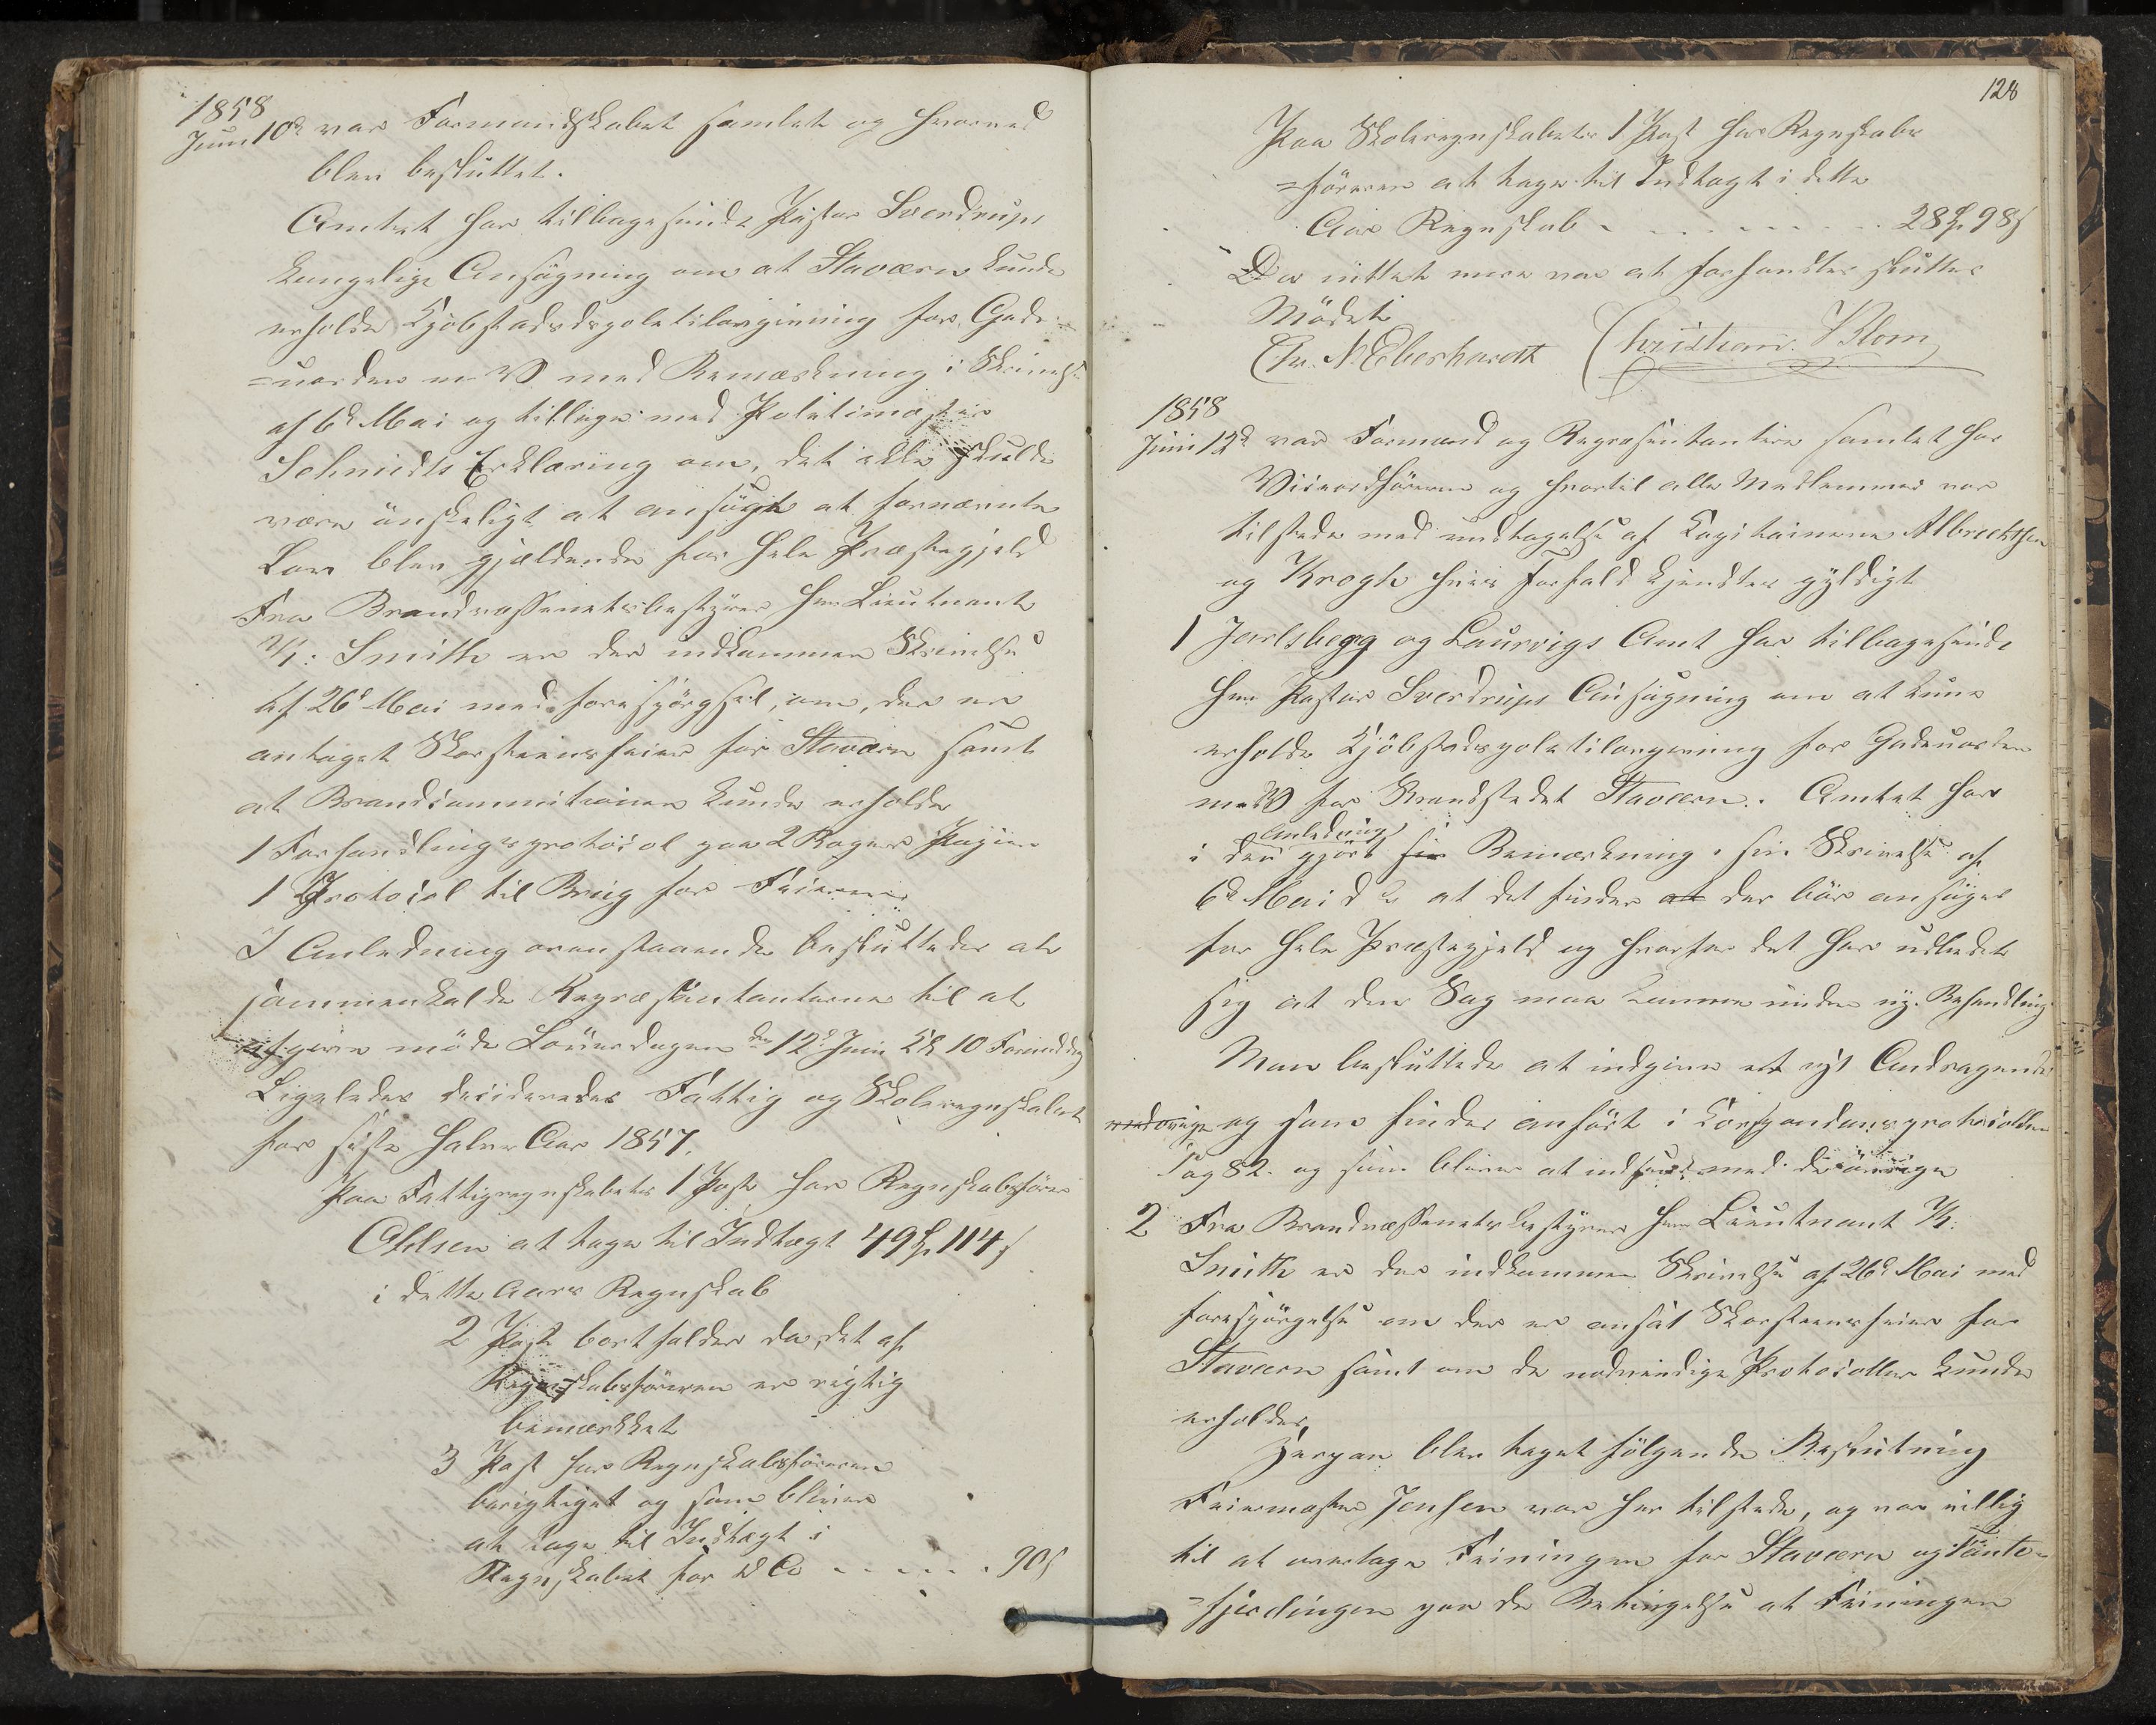 1858
Juni 10d var Formandskabet samlet og hvorved
blev besluttet.
Amtet har tilbagesendt Pastor Sverdrups
kongelige Ansøgning om at Staværn kunde
erholde Kjøbstadspoletilovgivning for Gade=
=uorden m V med Bemærkning i Skrivelse
af 6d Mai og tillige med Politimester
Schmidts Erklæring om, det ikke skulde
være ønskeligt at ansøge at fornævnte
Lov blev gjældende for hele Præstegjeld
Fra Brandvæsenetsbestyrer Hrr Lieutnant
Smith er der indkommen Skrivelse
af 26d Mai med forespørgsel, om, der er
antaget Skorsteensfeier for Staværn samt
at Brandcommitionen kunde erholde
1 Forhandlingsprotocol paa 2 Bøger Papir
1 Protocol til Brug for Feieren
I Anledning ovenstaaende besluttedes at
sammenkalde Repræsentanterne til at
afgive møde Løverdagen den 12d Juni Kl 10 Formiddag
Ligeledes decideredes Fattig og Skoleregnskabet
for siste halve Aar 1857.
Paa Fattigregnskabets 1 Post har Regnskabsfører
Ohlsen at tage til Indtægt 49 114 s
i dette Aars Regnskab
2 Post bortfalder da det af
Regnskabsføreren er rigtig
bemærkket
3 Post har Regnskabsføreren
berigtiget og som bliver
at tage til Indtægt i
Regnskabet for d Co - - - - - 90 s
128
Paa Skoleregnskabets 1 Post har Regnskabs
=føreren at tage til Indtægt i dette
Aars Regnskab - - - - - - - - 28 98 s
Da intet mere var at forhandle sluttes
Mødet
Chr. N Eberhardt Christian Blom
1858
Juni 12d var Formænd og Repræsentantere samlet hos
Viceordføreren og hvortil alle Medlemmer var
tilstede med undtagelse af Capitainerne Albrechtsen
og Krogh hvis Forfald kjendtes gyldigt
1 Jarlsberg og Laurvigs Amt har tilbagesendt
Hrr Pastor Sverdrups Ansøgning om at kune
erholde Kjøbstadspoletilovgivning for Gadeuorden
m V for Strandstedet Staværn. Amtet har
Anledning
i den gjort sin Bemærkning i sin Skrivelse af
6d Mai d A at det finder at der bør ansøges
for hele Præstegjeld og hvorfor det har udledet
sig at den Sag maa komme under ny Behandling
Man besluttede at indgive et nyt Andragende
og som findes anført i Correspondanceprotocollen
Pag 82. og som bliver at indsende med de øvrige
2 Fra Brandvæsenetsbestyrer Hrr Lieutnant
Smith er der indkommen Skrivelse af 26d Mai med
forespørgelse om der er ansat Skorsteensfeier for
Staværn samt om de nødvendige Protocoller kunde
erholdes,
Herpaa blev taget følgende Beslutning
Feiermester Jensen var her tilstede, og var villig
til at overtage Feiningen for Staværn og Tante=
=fjerdingen paa de Betingelse at Feiningen